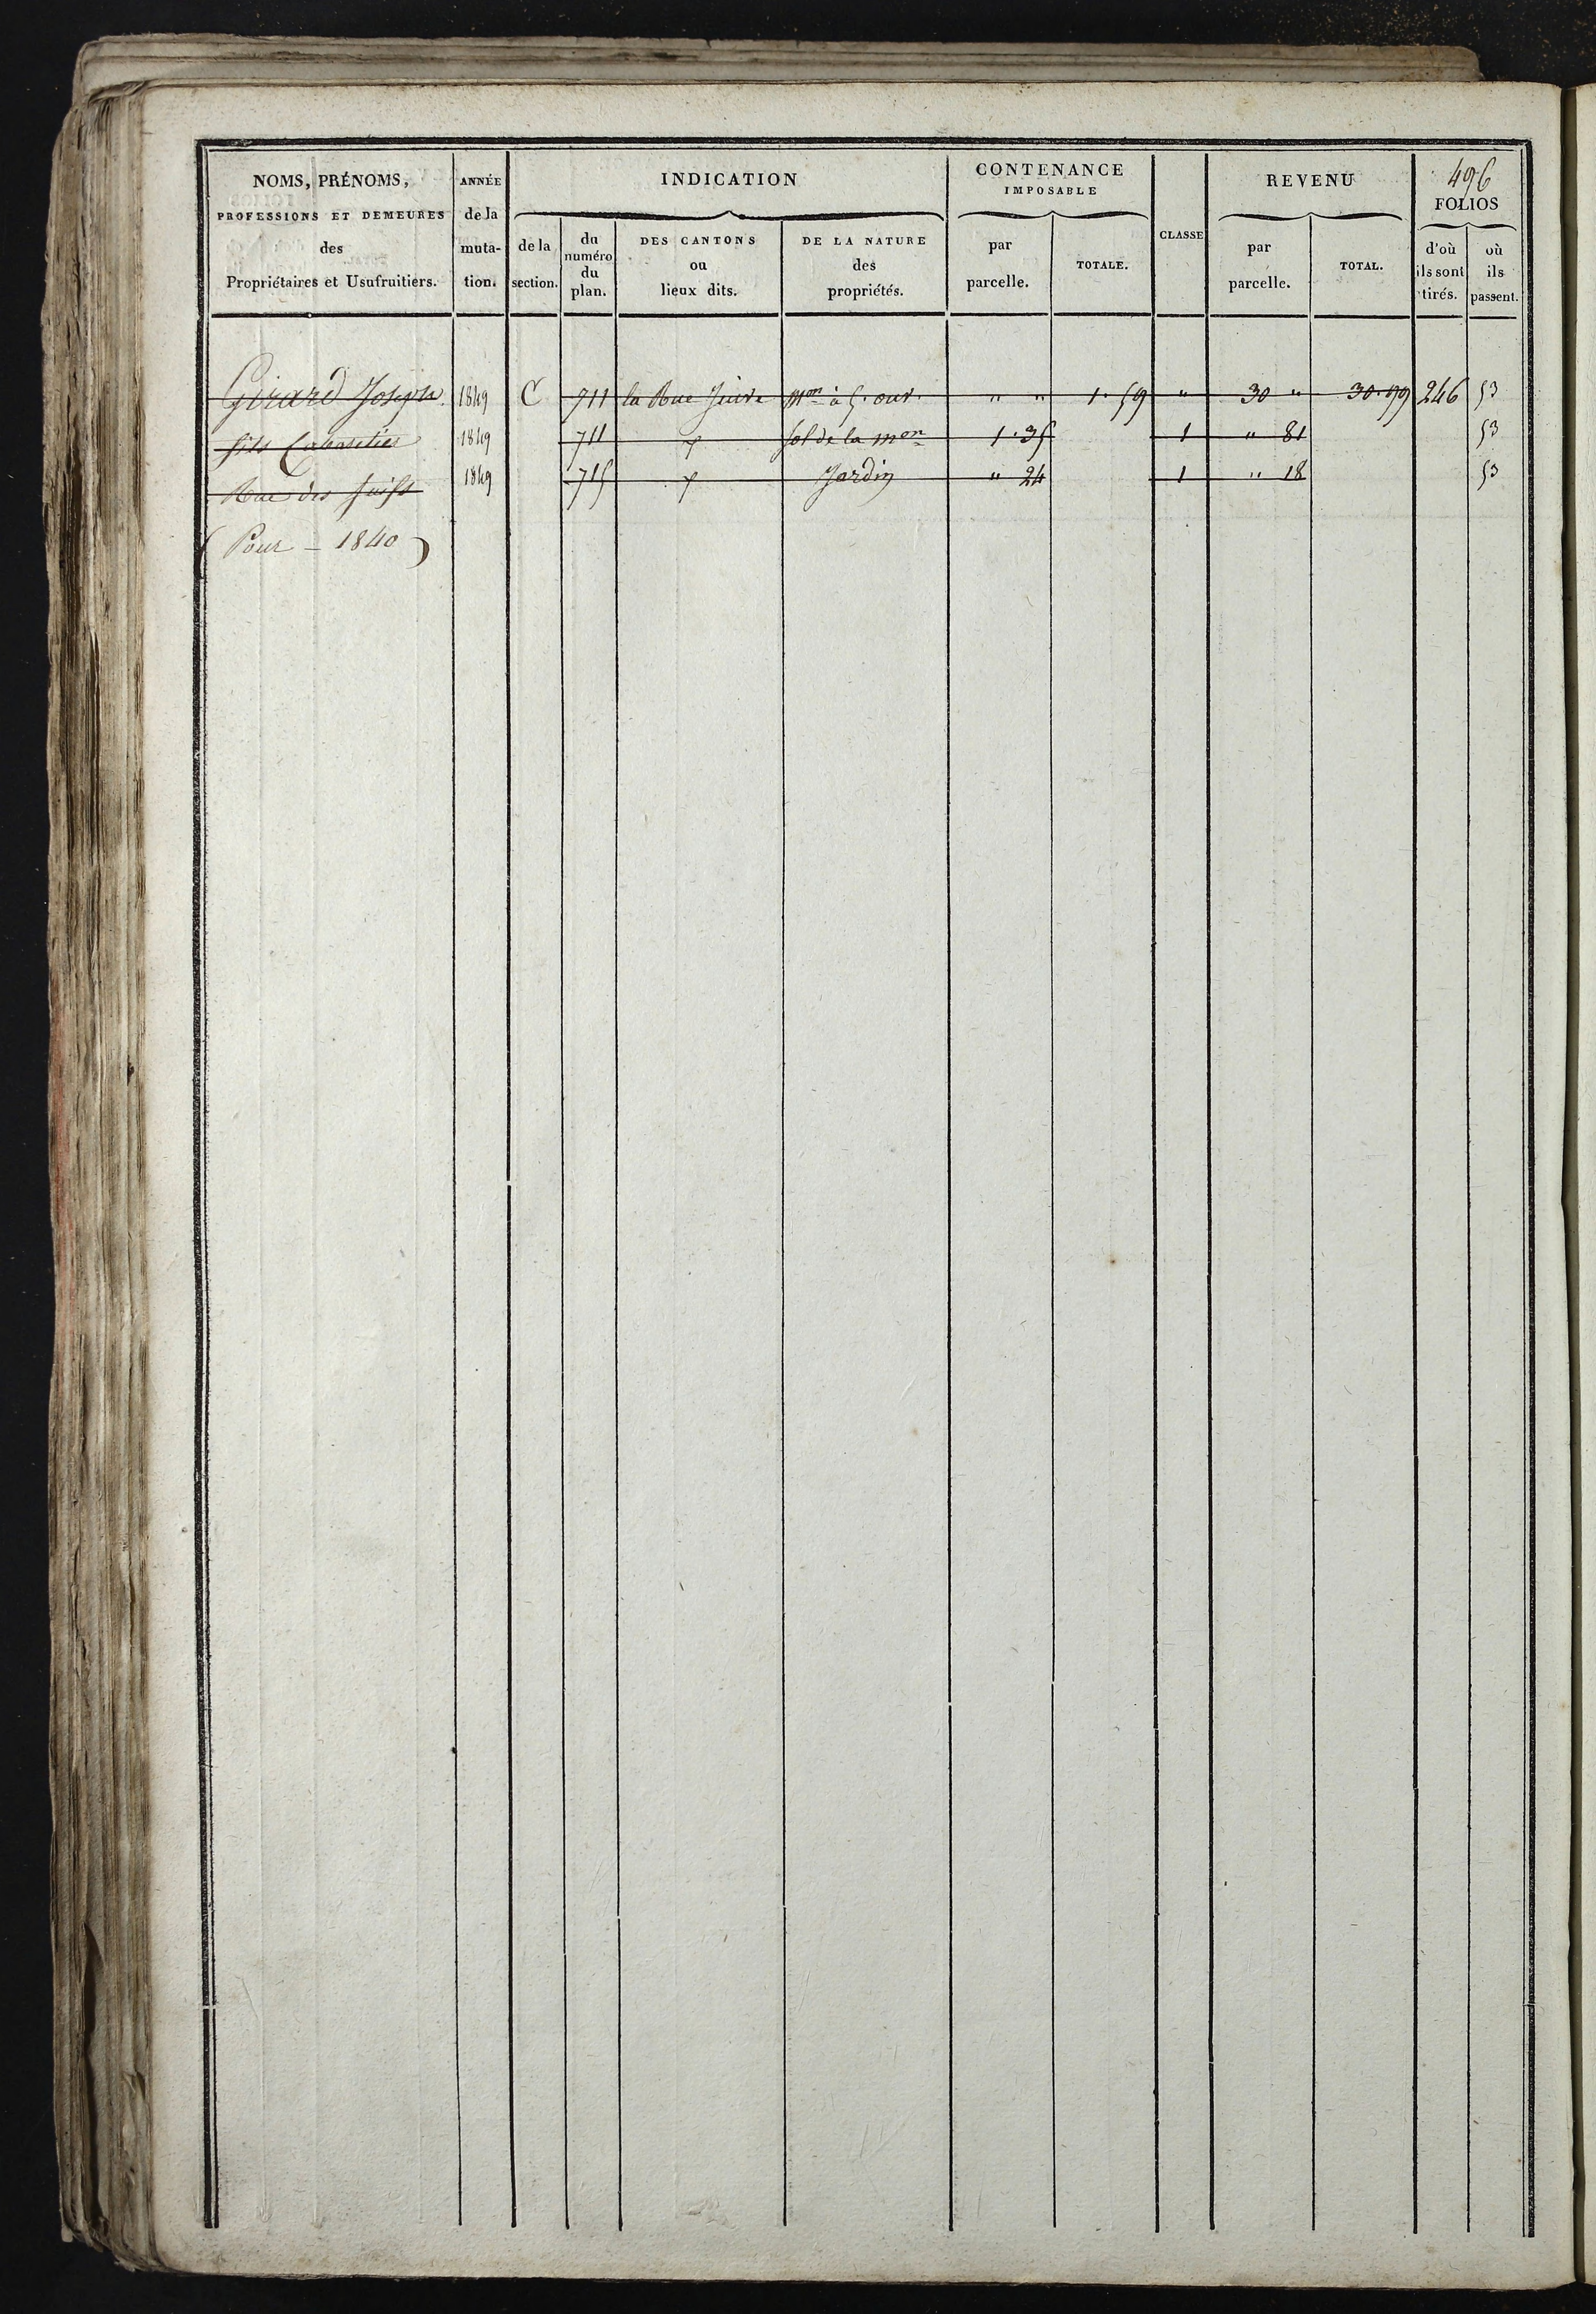 496
NOMS, PRÉNOMS, PROFESSIONS ET DEMEURES des Propriétaires et Usufruitiers.
ANNÉE de la muta-tion.
INDICATION
de la section.
du numéro du plan.
DES CANTONS ou lieux dits.
DE LA NATURE des propriétés.
CONTENANCE IMPOSABLE
par parcelle.
TOTALE.
CLASSE
REVENU
par parcelle.
TOTAL.
FOLIOS
d'où ils sont tirés.
où ils passent.
Girard Joseph 1849 C 711 la Rue Juive mon à 5. ouv. " " 1. 59 " 30 " 30. 99 246 53
fils Cabaretier 1849 711 sol de la mon 1. 35 1 " 81 53
Rue des Juifs 1849 715 Jardin " 24 1 " 18 53
(Pour - 1840)